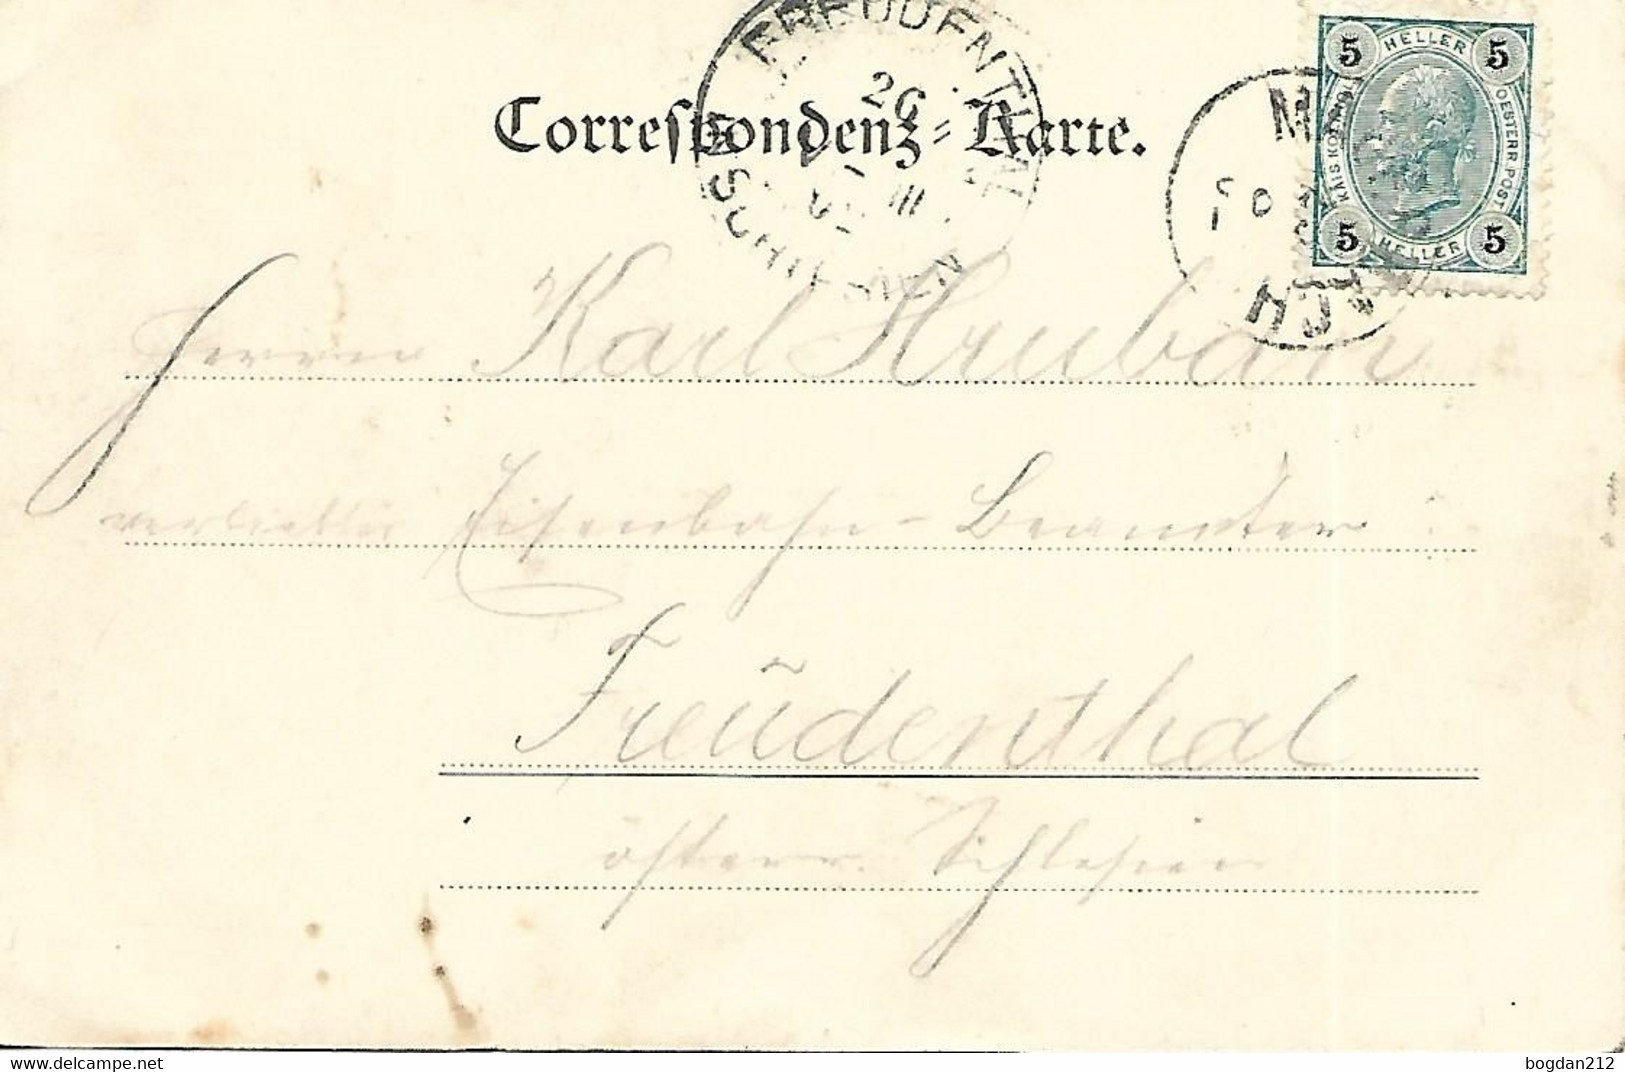 Correspondenz-Karte.
FREUDENTHAL
26
III
SCHLESIEN
5 HELLER 5
OESTERR. POST
5 HELLER 5
Herrn Karl Hruban
verliebter Eisenbahn-Beamter
Freudenthal
österr. Schlesien
www.delcampe.net
bogdan212